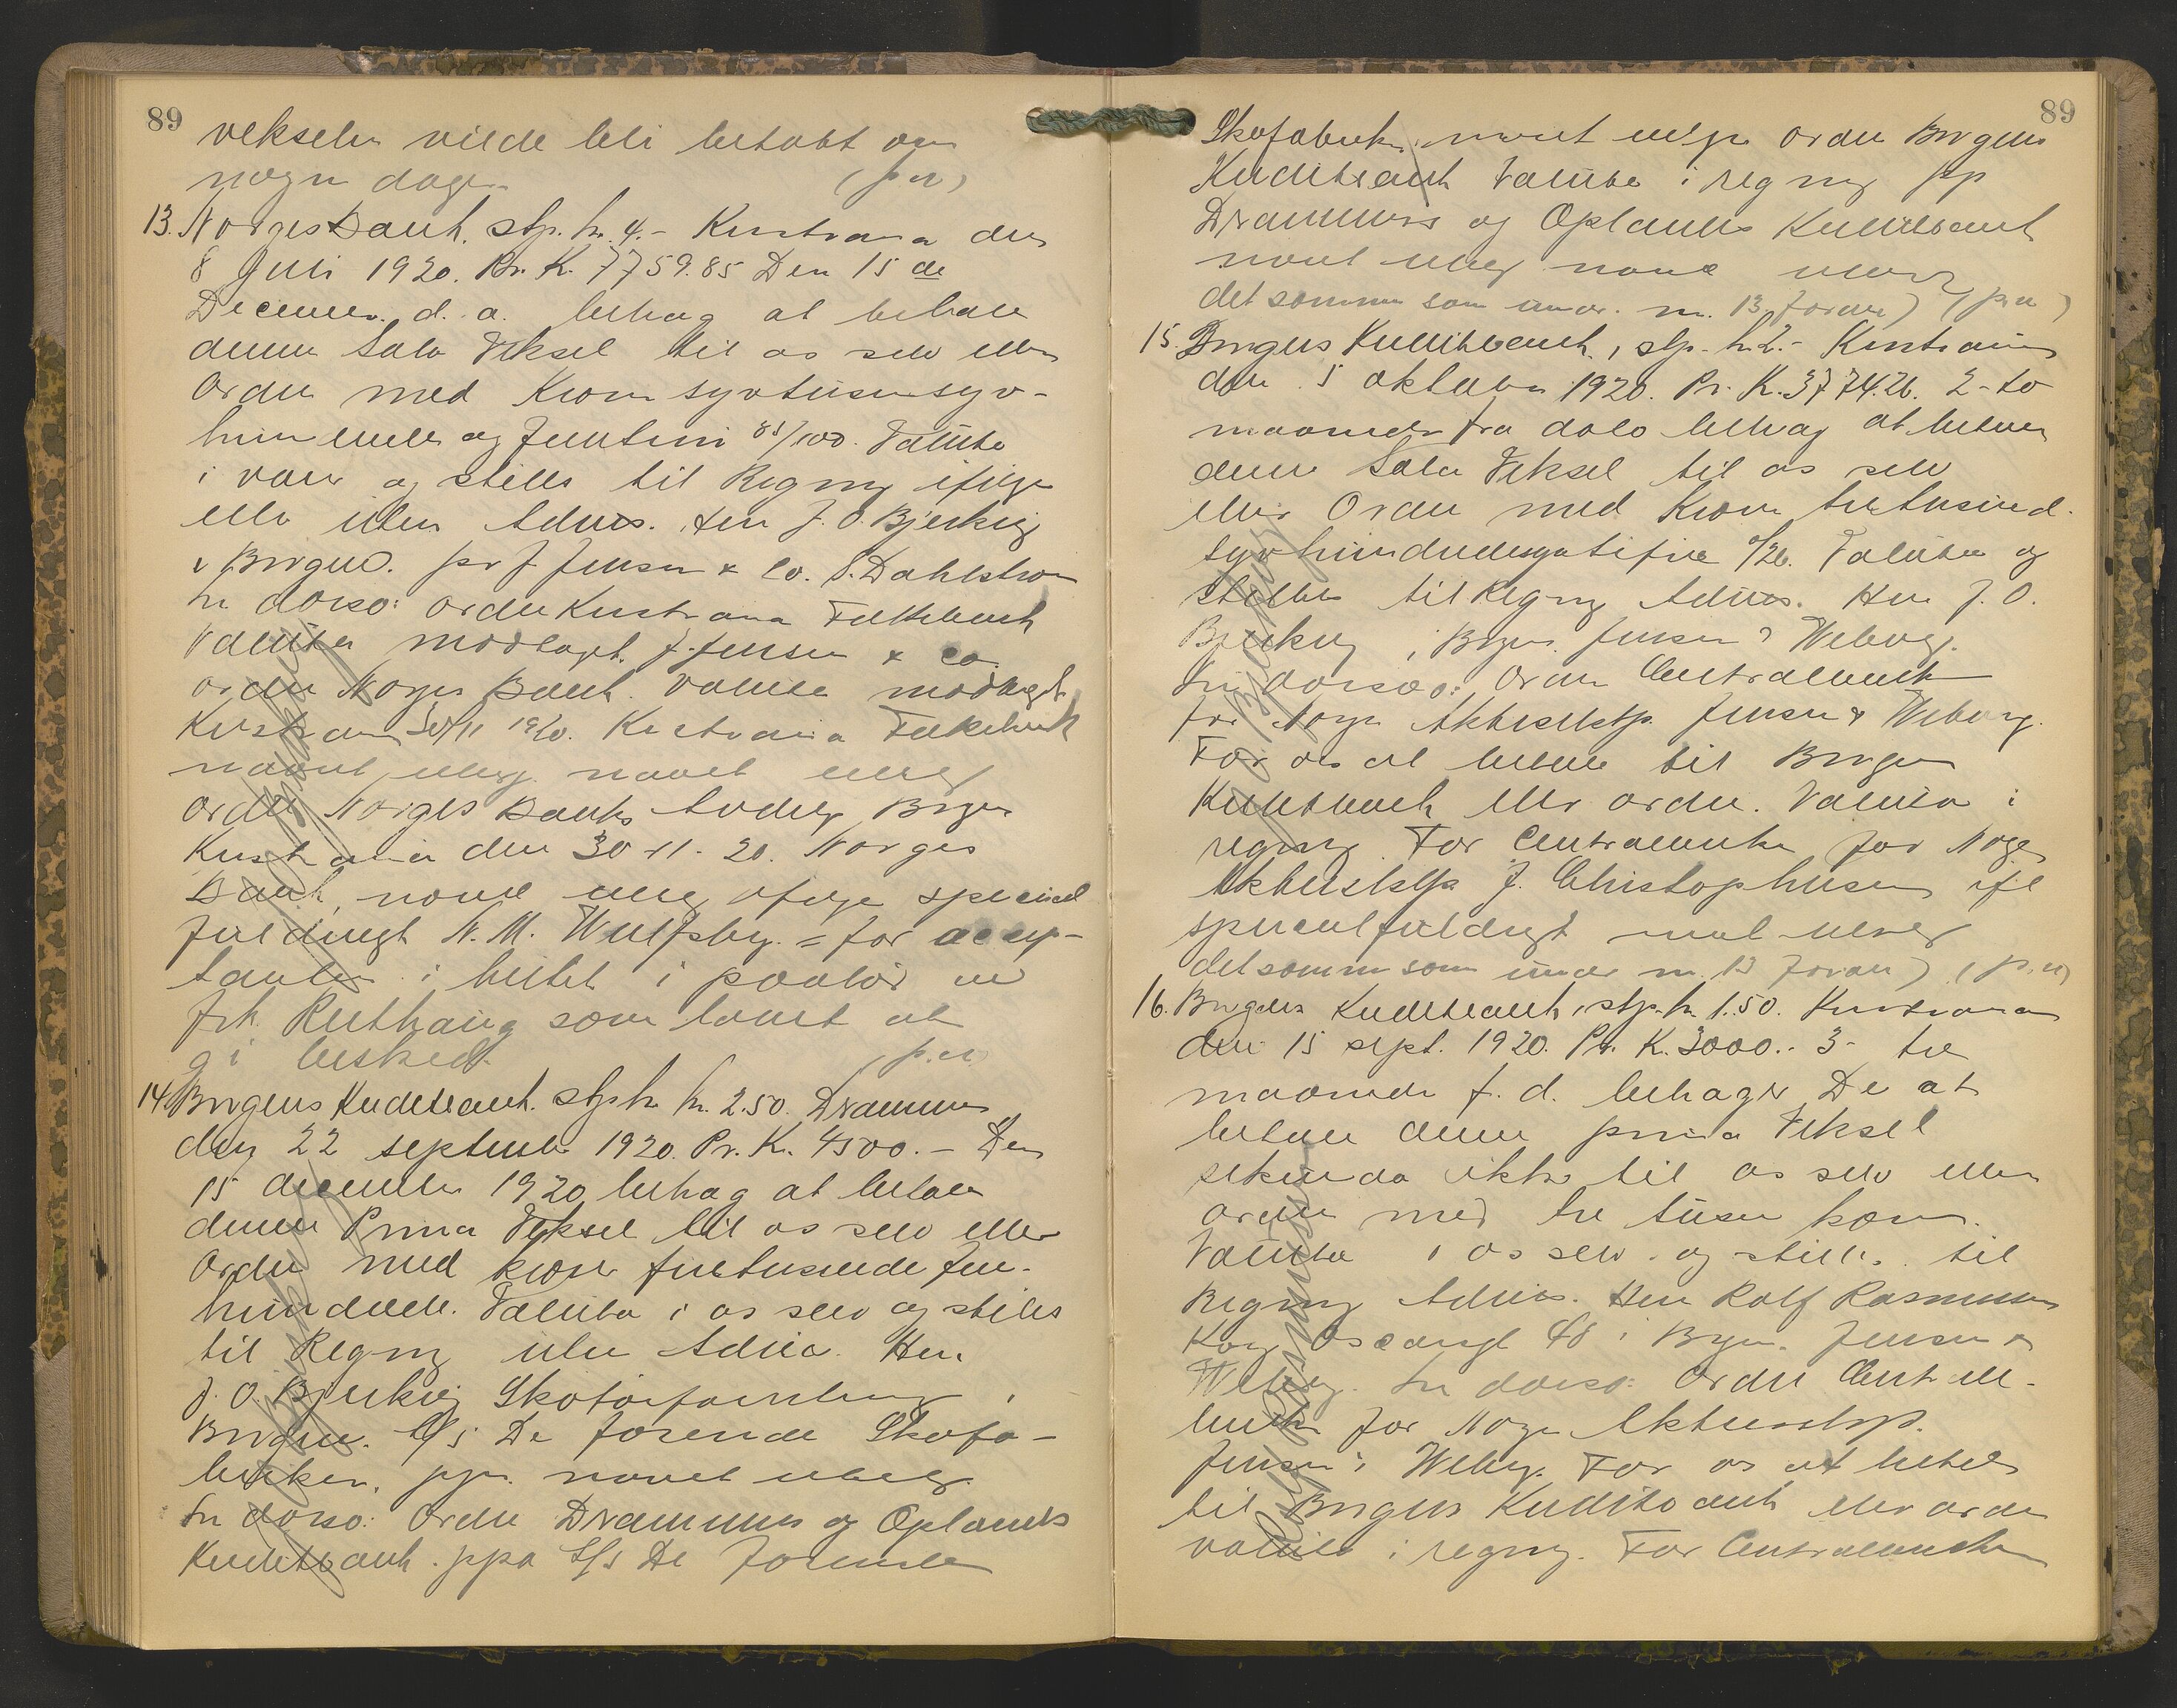 89
vekselen vilde bli betalt om
nogen dage. (p.u)
13. Norges Bank, stp. kr. 4.- Kristiania den
8 Juli 1920. Pr. K. 7759.85 Den 15 de
December d. a. behag at betale
denne Sola Veksel til os selv eller
Ordre med Kroner syvtusensyv-
hundrede og femtini 85/100. Valuta
i varer og stilles til Regning ifølge
eller uten Advis. Herr J. O. Bjerkvig
i Bergen. pr J. Jensen & Co. S. Dahlstrøm
In dorso: ordre Kristiania Folkebank
Valuta modtaget. J. Jensen & Co.
ordre Norges Bank. Valuta modtaget
Kristiania 30/11 1920. Kristiania Folkebank
navnet uleselig navnet uleselig
ordre Norges Banks Avdeling Bergen
Kristiania den 30-11-20. Norges
Bank, navnet uleselig ifølge speciel
fuldmagt N. M. Wulfsberg. = for accep-
tanten i huset i kontor ved
frk. Rutthaug som lovet at
gi besked. (p.u)
14. Bergens Kreditbank. stp. kr. 2.50. Drammen
den 22 september 1920. Pr. K. 4500.- Den
15 december 1920 behag at betale
denne Prima Veksel til os selv eller
Ordre med kroner firetusinde fem-
hundrede. Valuta i os selv og stilles
til Regning uten Advis. Herr
J. O. Bjerkvig Skotøiforretning i
Bergen. A/S De forenede Skofa-
briker, pp. navnet uleselig.
In dorso: Ordre Drammens og Oplands
Kreditbank. ppa A/S De Forenede
89
Skofabriker, navnet uleselig ordre Bergens
Kreditbank Valuta i regning pp
Drammens og Oplands Kreditbank
navnet uleselig navnet uleselig
det samme som under nr. 13 foran) (p.u)
15. Bergens Kreditbank, stp. kr. 2.- Kristiania
den 5 oktober 1920. Pr. K. 3774.26. 2- to
maaneder fra dato behag at betale
denne Sola Veksel til os selv
eller Ordre med Kroner tretusind-
syvhundredesyttifire 26. Valuta og
stilles til Regning Advis. Herr J. O.
Bjerkvig i Bergen. Jensen & Weberg.
In dorso: Ordre Centralbanken
for Norge Aktieselskap. Jensen & Weberg.
For os at betale til Bergens
Kreditbank eller ordre. Valuta i
regning. For Centralbanken for Norge
Aktieselskap J. Christophersen ifl
specialfuldmagt navnet uleselig
det samme som under nr. 13 foran) (p.u)
16. Bergens Kreditbank, stp. kr. 1.50. Kristiania
den 15 sept. 1920. Pr. K. 3000.- 3- tre
maaneder f. d. behager De at
betale denne prima Veksel
sekunda ikke til os selv eller
ordre med tre tusen kroner.
Valuta i os selv og stilles til
Regning Advis. Herr Rolf Rasmussen
Kong Oscarsgt 48 i Bergen. Jensen &
Weberg. In dorso: Ordre Central-
banken for Norge Aktieselskap.
Jensen & Weberg. For os at betale
til Bergens Kreditbank eller ordre
valuta i regning. For Centralbanken